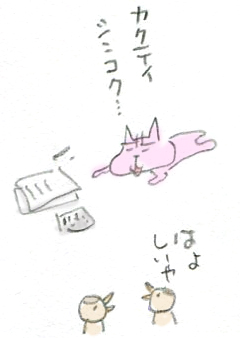 カクテイ
シンコク…
はよ
しいや